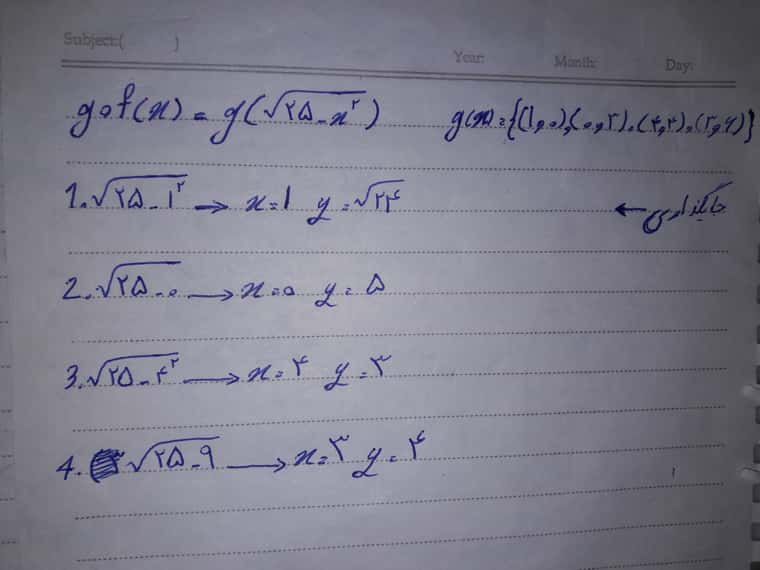 Subject:( )
Year: Month: Day:
gof(x) = g(√۲۵-x²) g(x)={(1,0),(0,۲),(۴,۲),(۳,۶)}
1. √۲۵-1² → x=1 y=√۲۴ ← جایگذاری
2. √۲۵-0 → x=0 y=۵
3. √۲۵-۴² → x=۴ y=۳
4. √۲۵-۹ → x=۳ y=۴